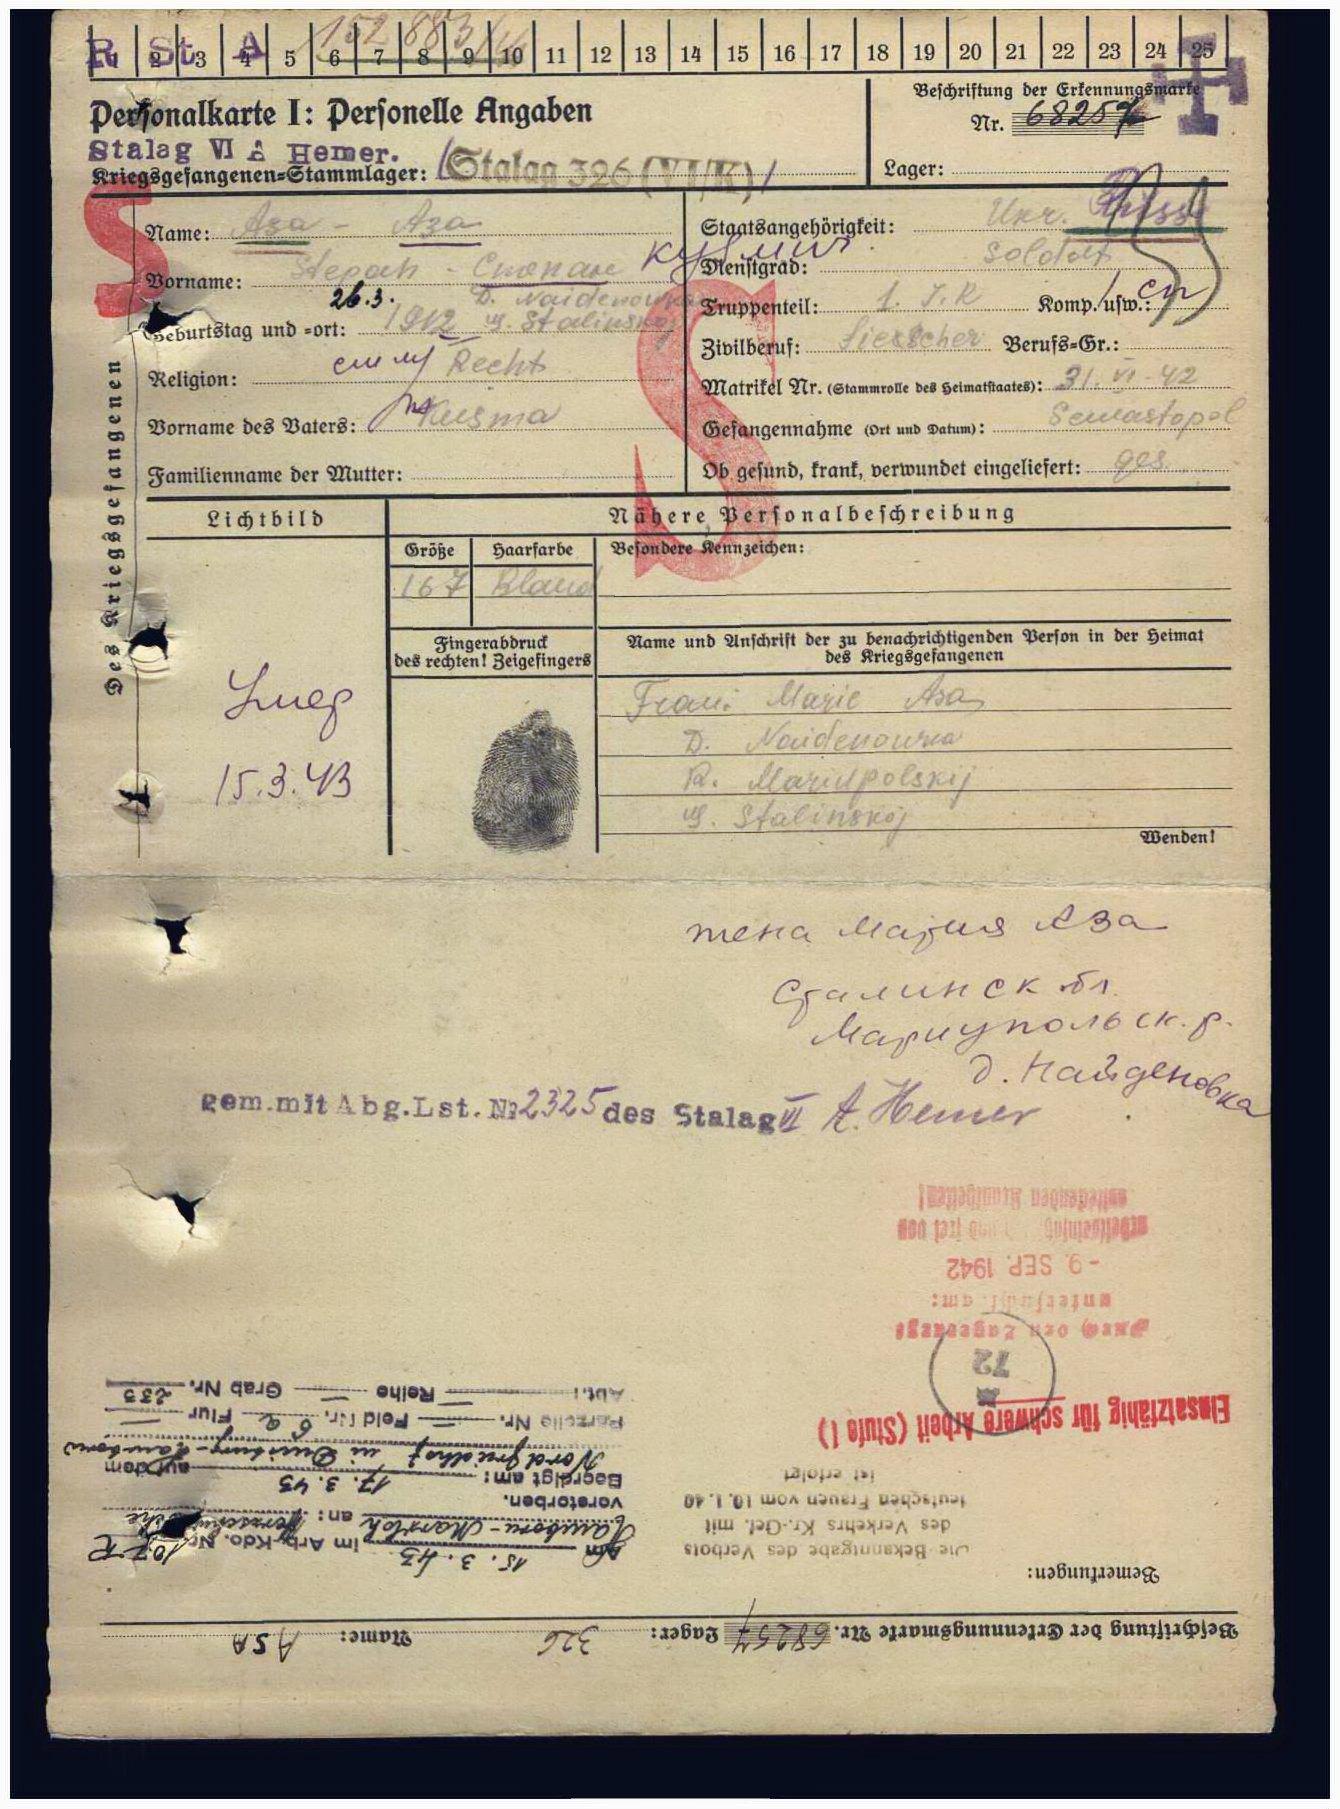 R. St. A
152883
1 2 3 4 5 6 7 8 9 10 11 12 13 14 15 16 17 18 19 20 21 22 23 24 25
Personalkarte I: Personelle Angaben
Stalag VI A Hemer.
Kriegsgefangenen-Stammlager: Stalag 326 (VI/K)
Beschriftung der Erkennungsmarke
Nr. 68257
Lager:
Des Kriegsgefangenen
Name: Asa - Аза
Vorname: Stepan - Степан Кузмич
Geburtstag und -ort: 26.3. 1912 D. Naidenowka
g. Stalinskoj
Religion: Recht
Vorname des Vaters: Kusma
Familienname der Mutter:
Staatsangehörigkeit: Ukr. Russe
Dienstgrad: Soldat
Truppenteil: 1. I.R Komp. usw.: сп
Zivilberuf: Berufs-Gr.:
Matrikel Nr. (Stammrolle des Heimatstaates): 31. VI. 42
Gefangennahme (Ort und Datum): Sewastopol
Ob gesund, krank, verwundet eingeliefert: ges.
Lichtbild
Nähere Personalbeschreibung
Größe Haarfarbe Besondere Kennzeichen:
167 Bland
Fingerabdruck
des rechten! Zeigefingers
Name und Anschrift der zu benachrichtigenden Person in der Heimat
des Kriegsgefangenen
Frau: Marie Asa
D. Naidenowka
R. Mariupolskij
g. Stalinskoj
Wenden!
Умер
15.3.43
жена Мария Аза
Сталинск обл.
Мариупольск. р.
д. Найденовка
gem. mit Abg. Lst. № 2325 des Stalag VI A. Hemer
Beschriftung der Erkennungsmarke Nr. 68257 Lager: 326 Name: ASA
Bemerkungen:
Die Bekanntgabe des Verbots
des Verkehrs Kr.-Gef. mit
deutschen Frauen vom 10.1.40
ist erfolgt
Einsatzfähig für schwere Arbeit (Stufe I)
72
Durch den Lagerarzt
untersucht am:
- 9. SEP. 1942
arbeitseinsatzfähig und frei von
ansteckenden Krankheiten!
Am 15. 3. 43 im Arb. Kdo. Nr. 107 R
Hamborn-Marxloh an: Herzschwäche
verstorben.
Beerdigt am: 17. 3. 43 auf dem
Nordfriedhof in Duisburg-Hamborn
Parzelle Nr. — Feld Nr. 6 a Flur —
Abt.: — Reihe — Grab Nr. 233